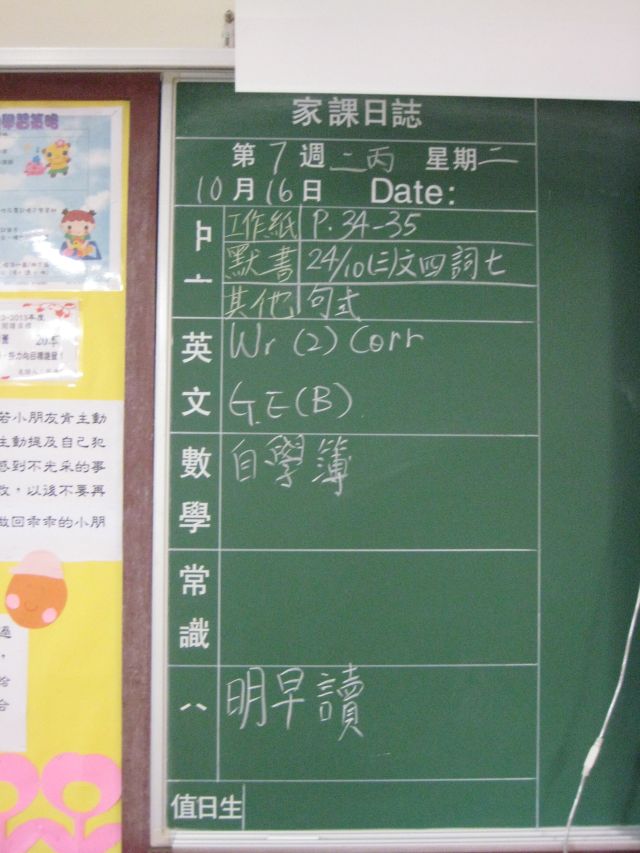 學習策略
家課日誌
第7週 二丙 星期二
10月16日 Date:
工作紙 P.34-35
默書 24/10(三)文四詞七
其他 句式
英文 Wr (2) Corr
G.E(B)
數學 自學簿
常識
明早讀
值日生
2013年度
若小朋友肯主動
主動提及自己犯
感到不光采的事
改，以後不要再
做回乖乖的小朋